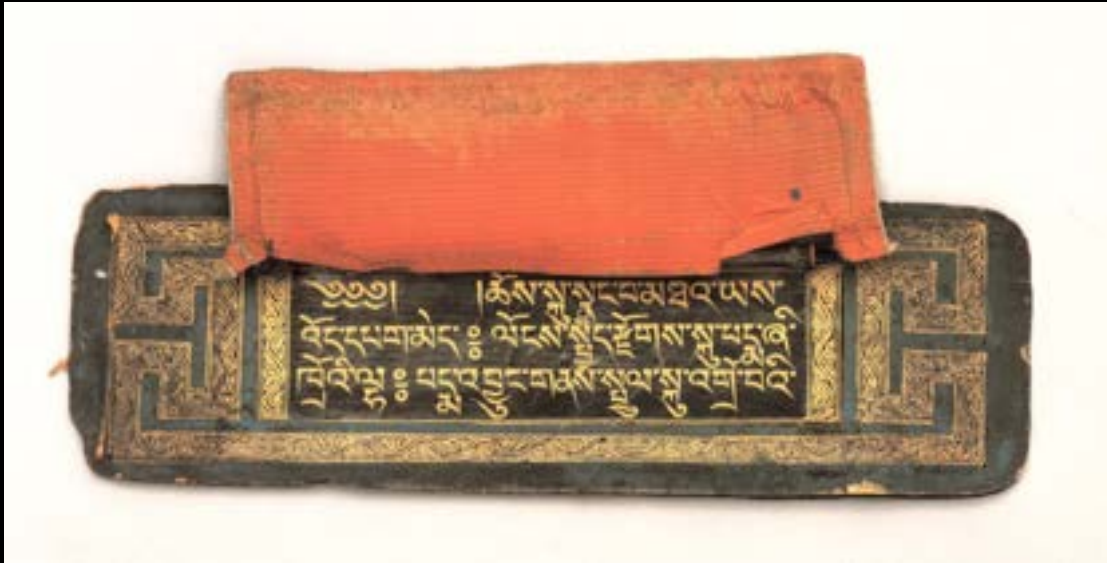 ༄༅༅། །ཆོས་སྐུ་སྣང་བ་མཐའ་ཡས་
འོད་དཔག་མེད་༔ ལོངས་སྤྱོད་རྫོགས་སྐུ་པདྨ་ཞི་
ཁྲོའི་ལྷ༔ པདྨ་འབྱུང་གནས་སྤྲུལ་སྐུ་འགྲོ་བའི་